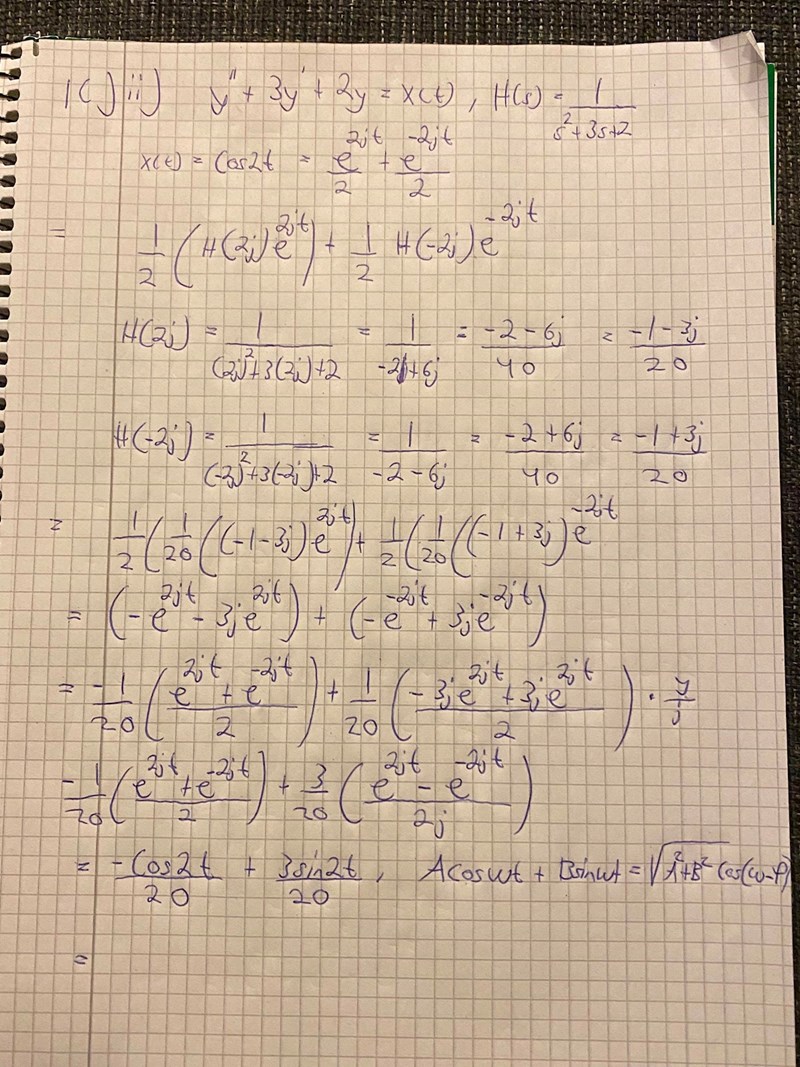 1(j)ii) y'' + 3y' + 2y = x(t) , H(s) = 1/(s²+3s+2)
x(t) = Cos2t = e^{2jt}/2 + e^{-2jt}/2
= 1/2 (H(2j)e^{2jt}) + 1/2 H(-2j)e^{-2jt}
H(2j) = 1/((2j)²+3(2j)+2) = 1/(-2+6j) = (-2-6j)/40 = (-1-3j)/20
H(-2j) = 1/((-2j)²+3(-2j)+2) = 1/(-2-6j) = (-2+6j)/40 = (-1+3j)/20
= 1/2 (1/20 ((-1-3j)e^{2jt}) + 1/2 (1/20 ((-1+3j)e^{-2jt}
= (-e^{2jt} - 3je^{2jt}) + (-e^{-2jt} + 3je^{-2jt})
= -1/20 ((e^{2jt} + e^{-2jt})/2) + 1/20 ((-3je^{2jt} + 3je^{2jt})/2) · j/j
= -1/20 ((e^{2jt} + e^{-2jt})/2) + 3/20 ((e^{2jt} - e^{-2jt})/2j)
= -Cos2t/20 + 3sin2t/20 , Acoswt + Bsinwt = √(A²+B²) Cos(w-φ)
=